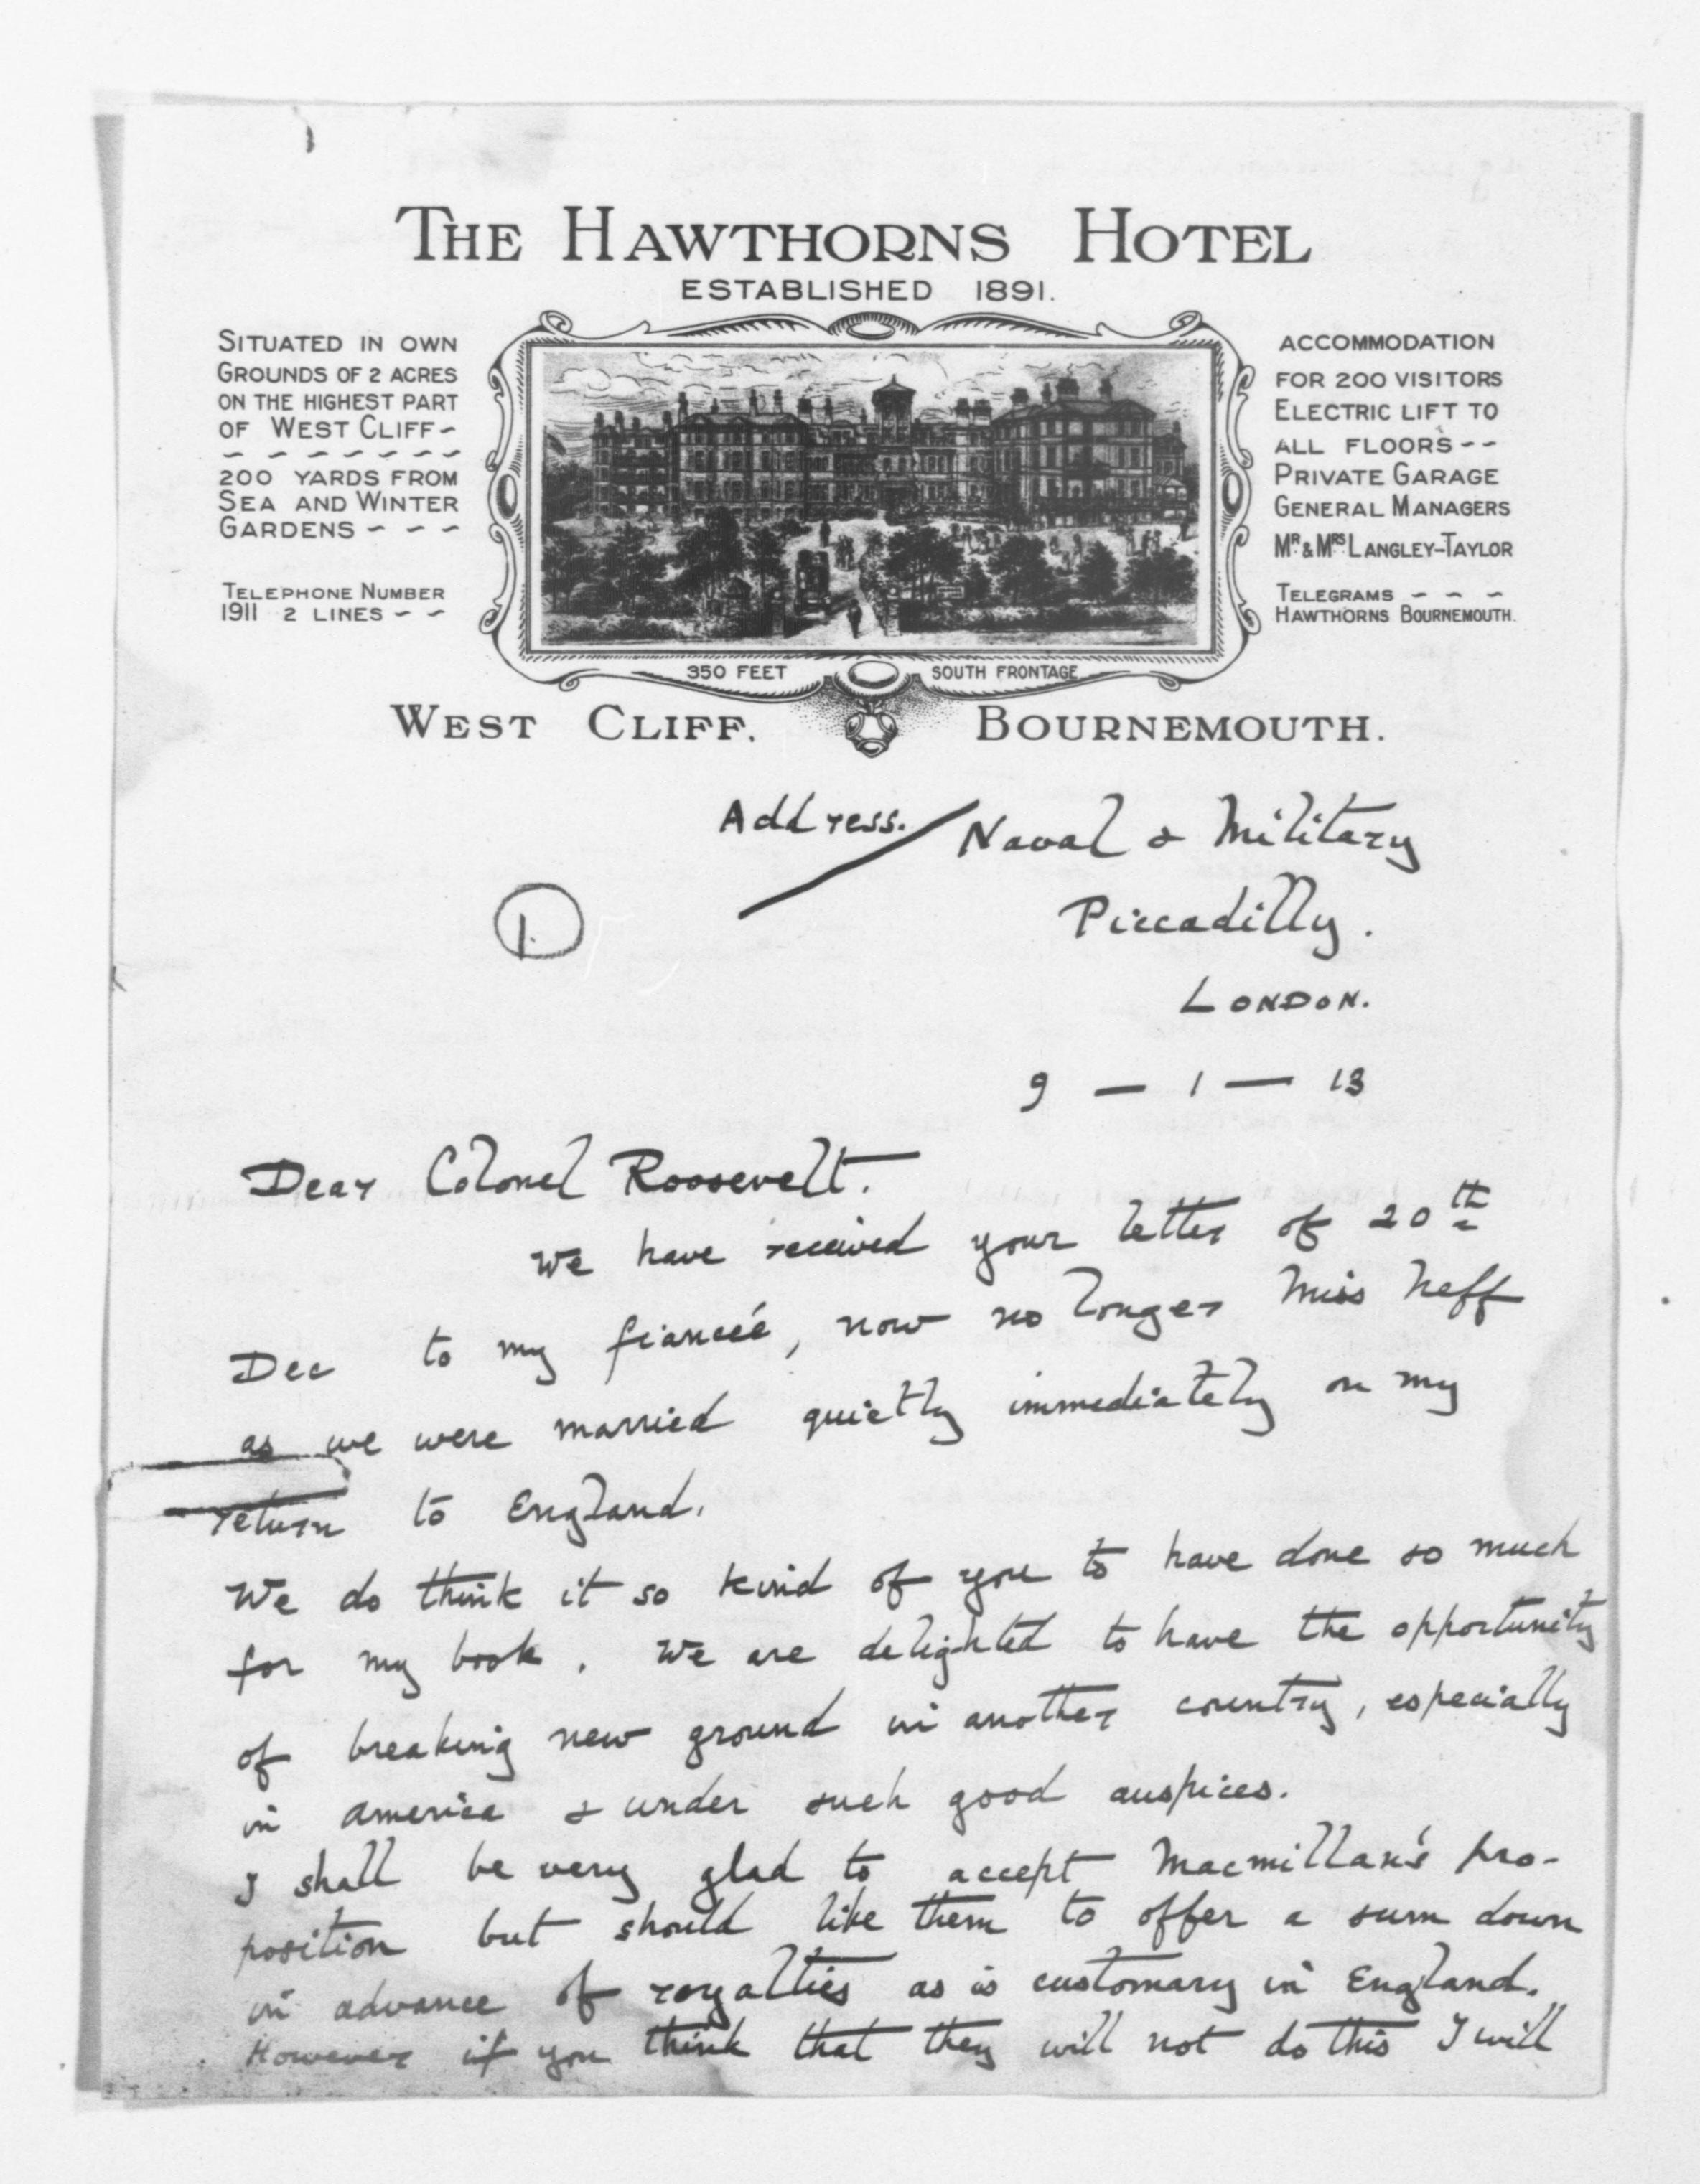 THE HAWTHORNS HOTEL
ESTABLISHED 1891.
SITUATED IN OWN
GROUNDS OF 2 ACRES
ON THE HIGHEST PART
OF WEST CLIFF-
200 YARDS FROM
SEA AND WINTER
GARDENS - - -
TELEPHONE NUMBER
1911 2 LINES - -
ACCOMMODATION
FOR 200 VISITORS
ELECTRIC LIFT TO
ALL FLOORS--
PRIVATE GARAGE
GENERAL MANAGERS
MR & MRS LANGLEY-TAYLOR
TELEGRAMS - - -
HAWTHORNS BOURNEMOUTH.
350 FEET SOUTH FRONTAGE
WEST CLIFF. BOURNEMOUTH.
Address. / Naval & Military
Piccadilly.
LONDON.
1.
9 — 1 — 13
Dear Colonel Roosevelt.
We have received your letter of 20th
Dec to my fianceé, now no longer Miss Neff
as we were married quietly immediately on my
return to England.
We do think it so kind of you to have done so much
for my book. We are delighted to have the opportunity
of breaking new ground in another country, especially
in America & under such good auspices.
I shall be very glad to accept Macmillan's pro-
position but should like them to offer a sum down
in advance of royalties as is customary in England.
However if you think that they will not do this I will